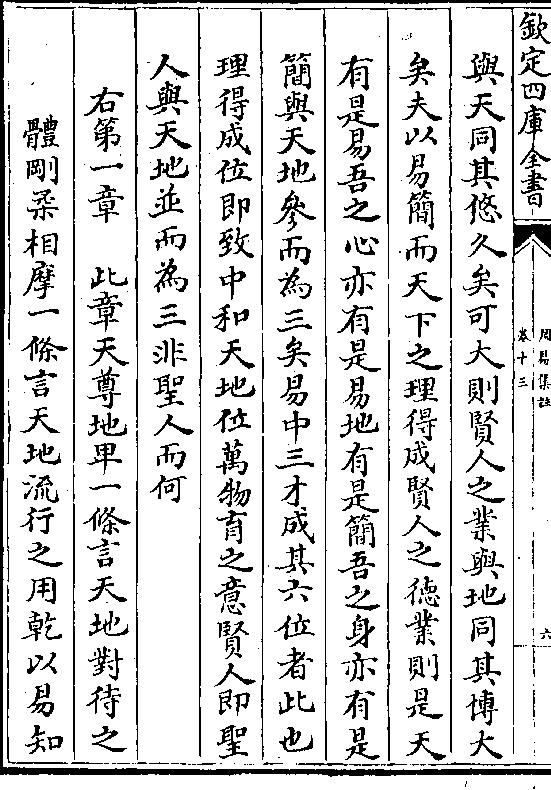 欽定四庫全書
周易集註
卷十三
六
與天同其悠久矣可大則賢人之業與地同其博大
矣夫以易簡而天下之理得成賢人之德業則是天
有是易吾之心亦有是易地有是簡吾之身亦有是
簡與天地參而為三矣易中三才成其六位者此也
理得成位即致中和天地位萬物育之意賢人即聖
人與天地並而為三非聖人而何
右第一章　此章天尊地卑一條言天地對待之
體剛柔相摩一條言天地流行之用乾以易知